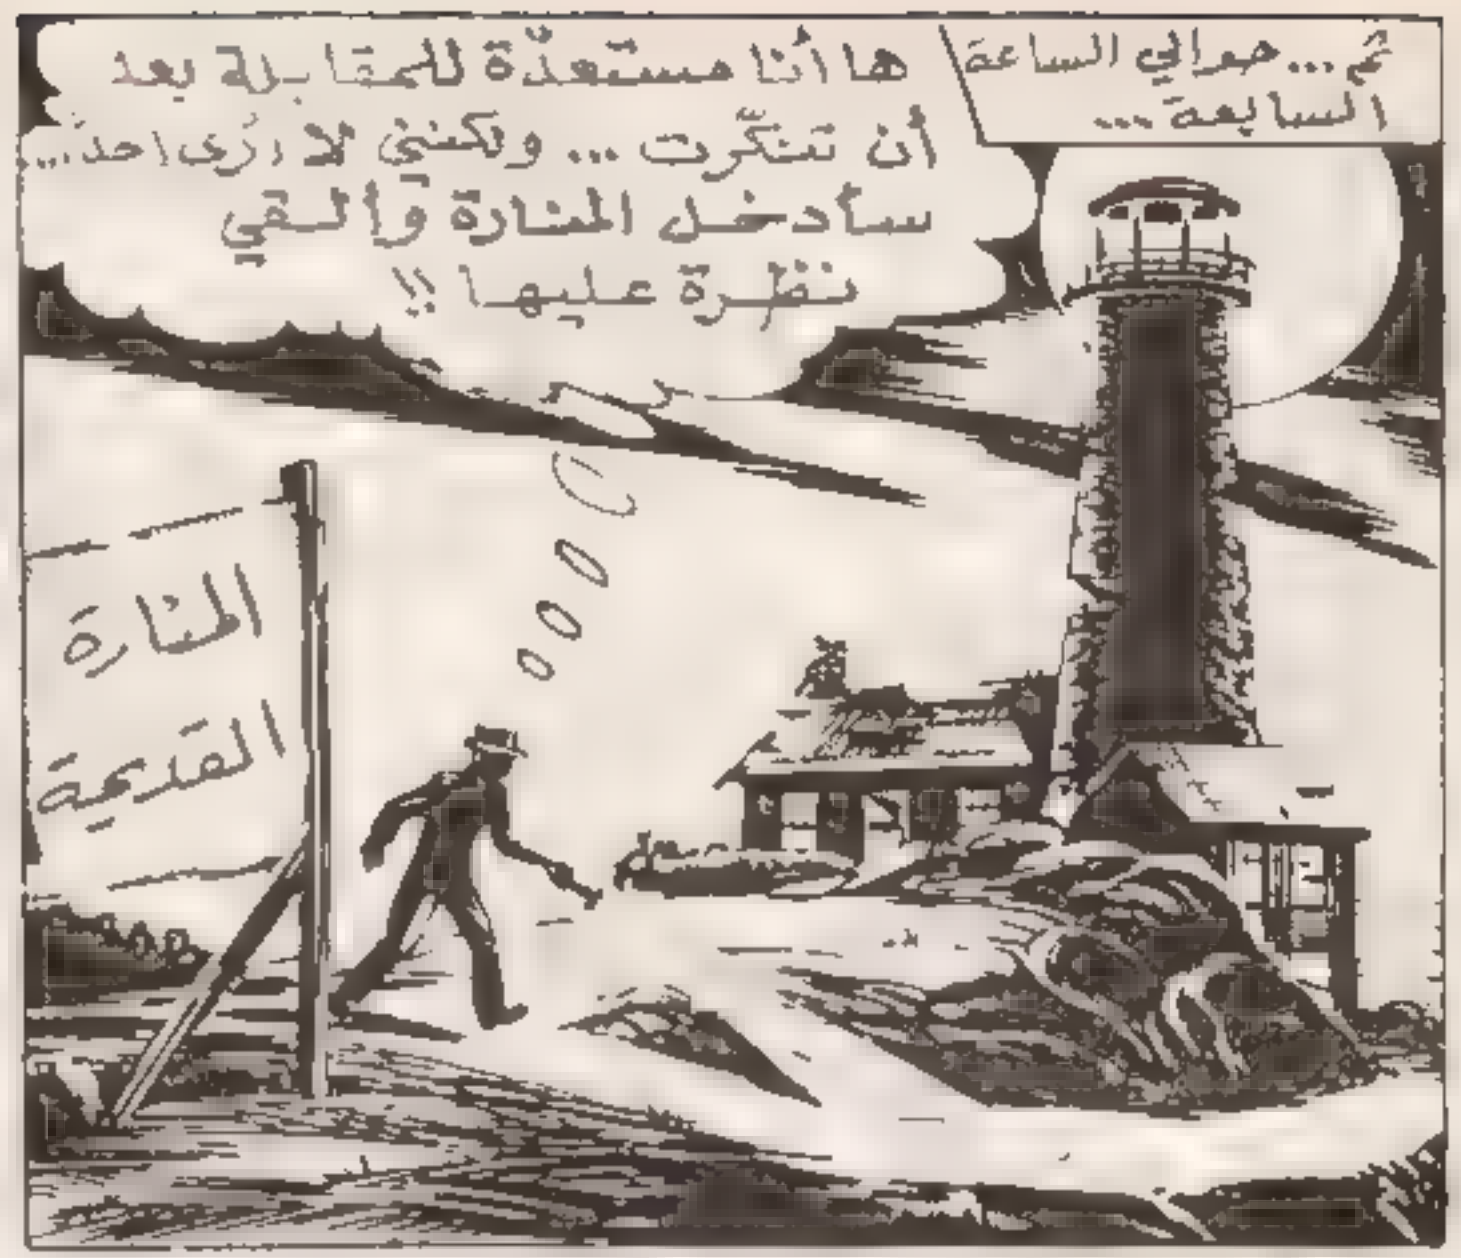 ثم... حوالي الساعة
السابعة...
ها أنا مستعدّة للمقابلة بعد
أن تنكّرت... ولكنني لا أرى أحدً...
سأدخل المنارة وألقي
نظرة عليها !!
المنارة
القديمة